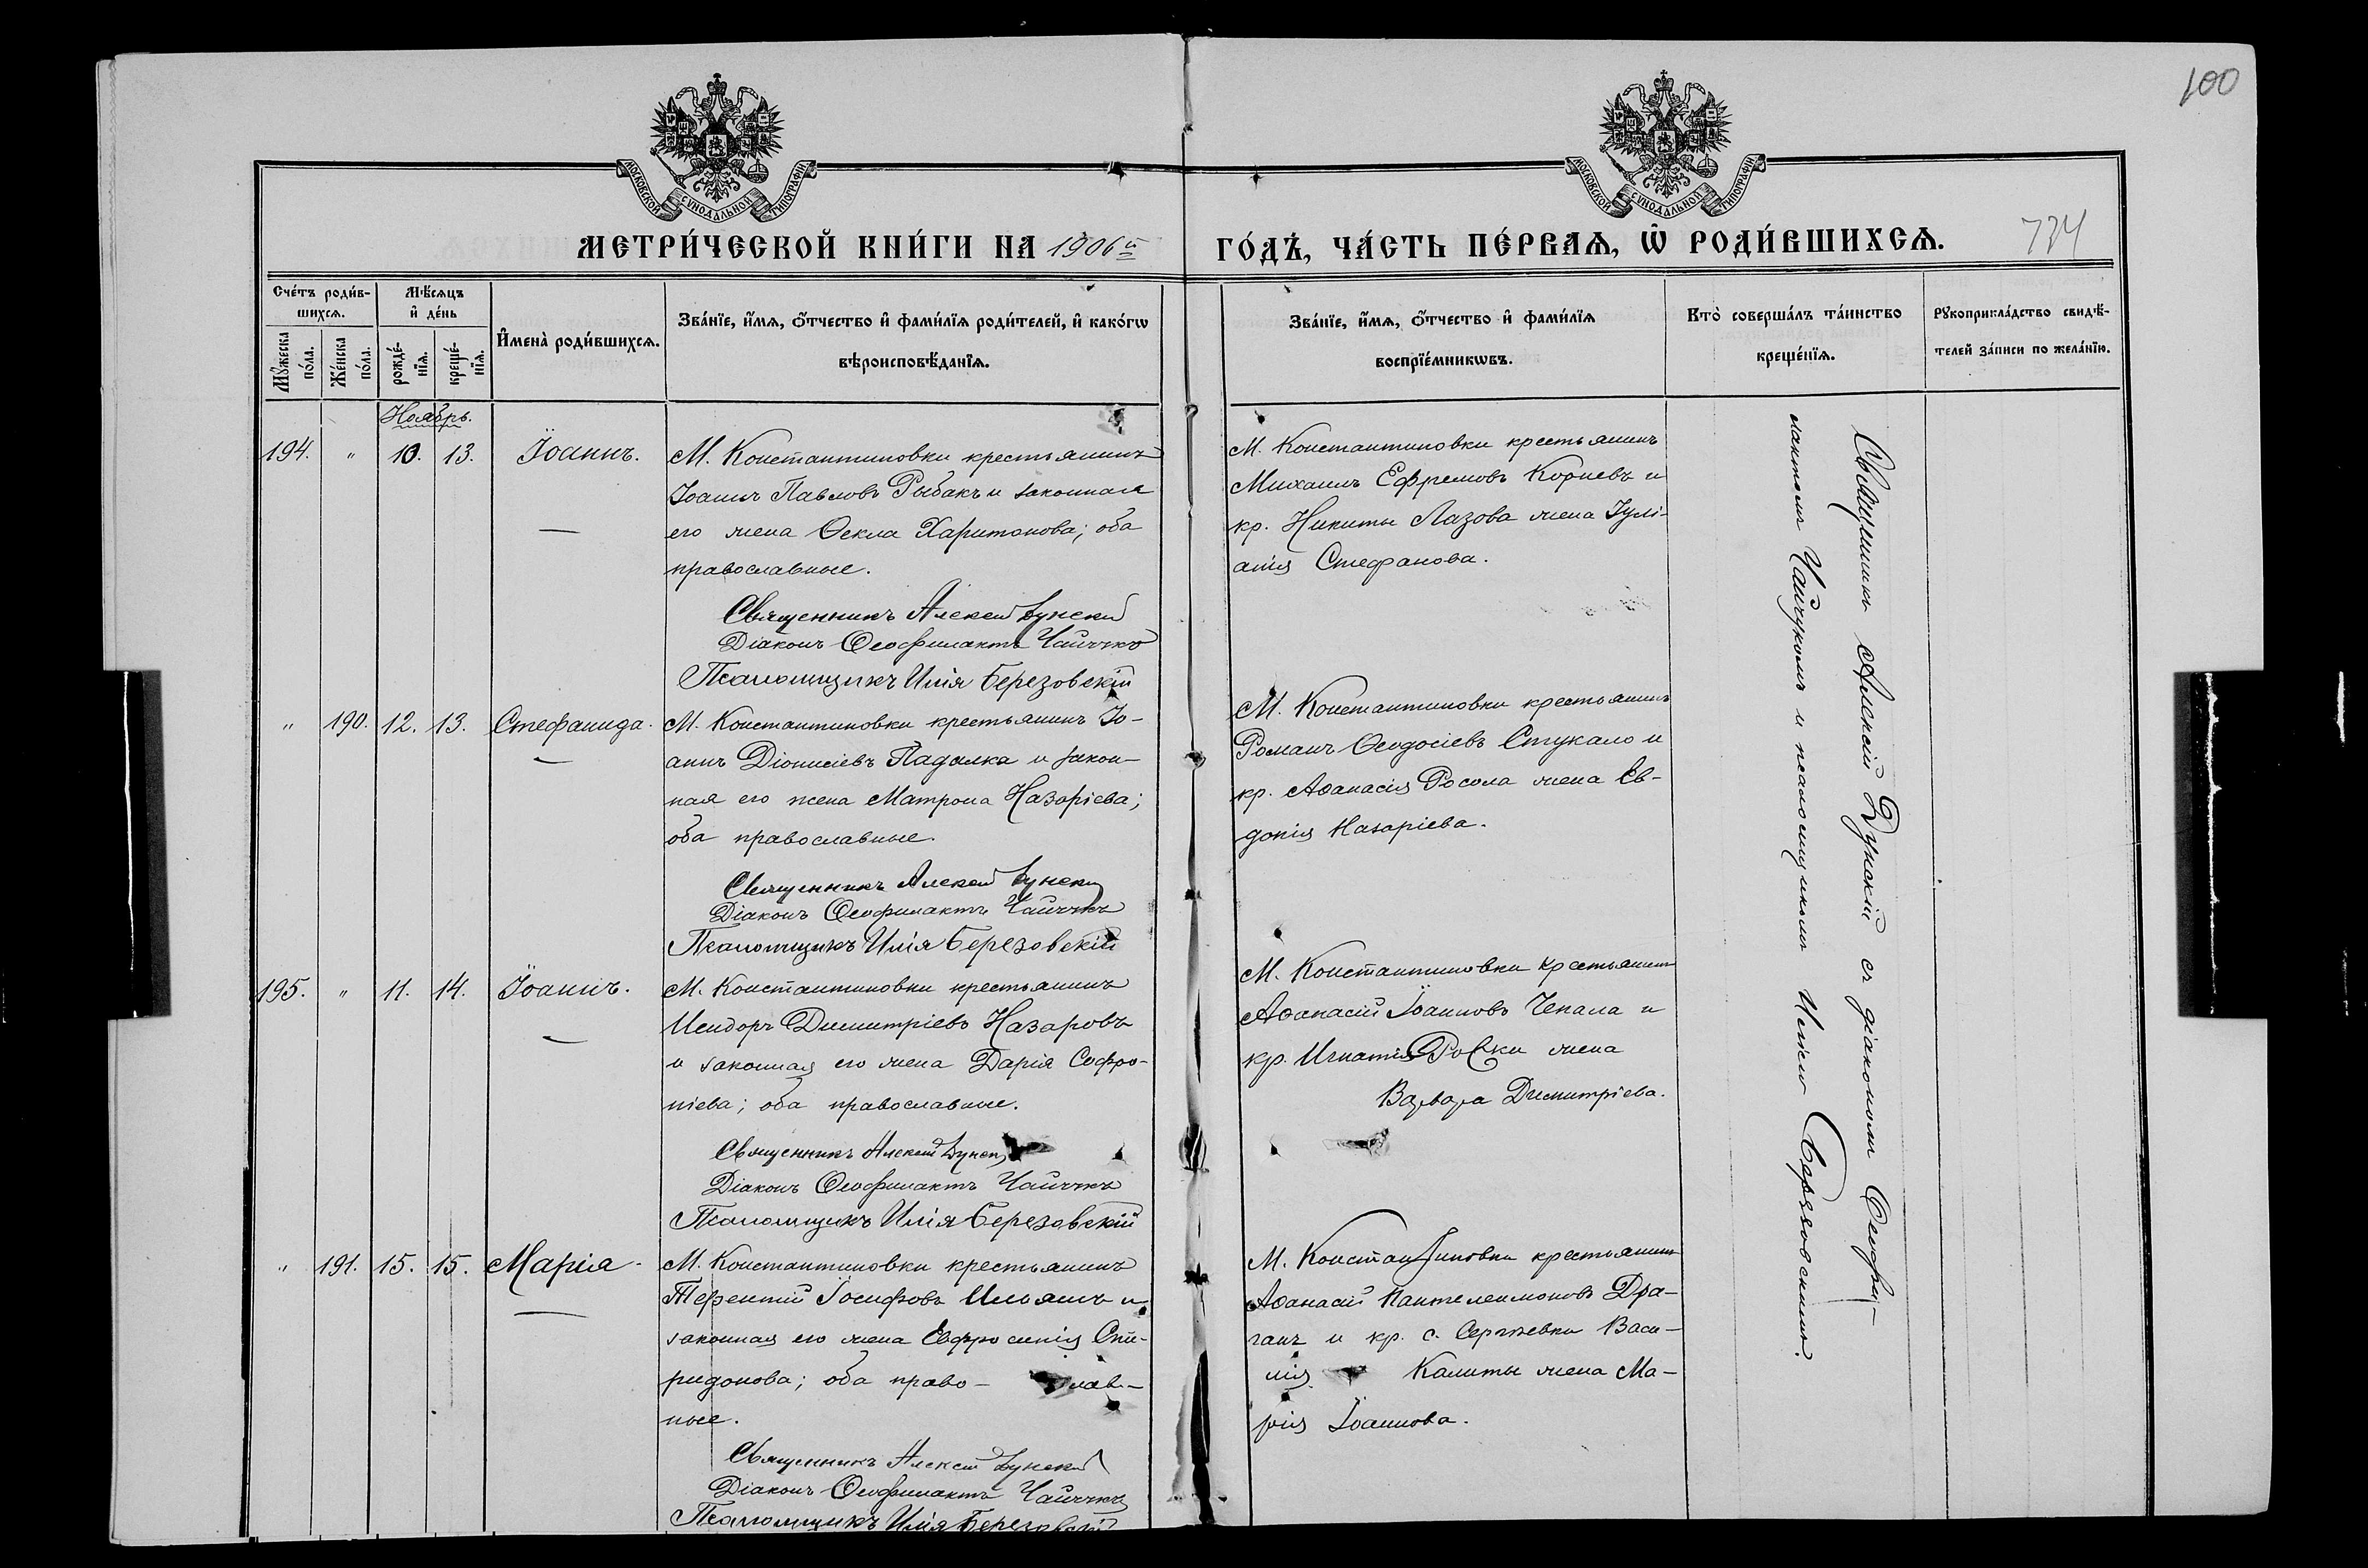 100
МОСКОВСКОЙ СѴНОДАЛЬНОЙ ТИПОГРАФІИ
МОСКОВСКОЙ СѴНОДАЛЬНОЙ ТИПОГРАФІИ
МЕТРИ́ЧЕСКОЙ КНИ́ГИ НА 1906й
ГО́ДЪ, ЧА́СТЬ ПЕ́РВАѦ, Ѡ҆ РОДИ́ВШИХСѦ.
Сче́тъ роди́в-
шихсѧ.
Мꙋ́жеска
по́ла.
Же́нска
по́ла.
Мѣ́сѧцъ
и҆ де́нь
рожде́-
нїѧ.
креще́-
нїѧ.
И҆мена̀ роди́вшихсѧ.
Зва́нїе, и҆́мѧ, ѻ҆́тчество и҆ фами́лїѧ роди́телей, и҆ како́гѡ
вѣроисповѣ́данїѧ.
Зва́нїе, и҆́мѧ, ѻ҆́тчество и҆ фами́лїѧ
воспрїе́мникѡвъ.
Кто̀ соверша́лъ та́инство
креще́нїѧ.
Рꙋкоприкла́дство свидѣ́-
телей за́писи по жела́нїю.
Ноябрь.
194. " 10. 13. Іоаннъ.
М. Константиновки крестьянинъ
Іоаннъ Павловъ Рыбакъ и законная
его жена Ѳекла Харитонова; оба
православные.
Священникъ Алексій Дунскій
Діаконъ Ѳеофилактъ Чайчукъ
Псаломщикъ Илія Березовскій
М. Константиновки крестьянинъ
Михаилъ Ефремовъ Корневъ и
кр. Никиты Лазова жена Іулі-
анія Стефанова.
" 190. 12. 13. Стефанида.
М. Константиновки крестьянинъ Іо-
аннъ Діонисіевъ Падалка и закон-
ная его жена Матрона Назаріева;
оба православные.
Священникъ Алексій Дунскій
Діаконъ Ѳеофилактъ Чайчукъ
Псаломщикъ Илія Березовскій
М. Константиновки крестьянинъ
Романъ Ѳеодосіевъ Стукало и
кр. Аѳанасія Росола жена Ев-
докія Назаріева.
195. " 11. 14. Іоаннъ.
М. Константиновки крестьянинъ
Исидоръ Димитріевъ Назаровъ
и законная его жена Дарія Софро-
ніева; оба православные.
Священникъ Алексій Дунскій
Діаконъ Ѳеофилактъ Чайчукъ
Псаломщикъ Илія Березовскій
М. Константиновки крестьянинъ
Аѳанасій Іоанновъ Чепала и
кр. Игнатія жена
Варвара Димитріева.
" 191. 15. 15. Марія.
М. Константиновки крестьянинъ
Терентій Іосифовъ Ильяшъ и
законная его жена Евфросинія Спи-
ридонова; оба право-лав-
ные.
Священникъ Алексій Дунскій
Діаконъ Ѳеофилактъ Чайчукъ
Псаломщикъ Илія Березовскій
М. Константиновки крестьянинъ
Аѳанасій Пантелеимоновъ Дра-
ганъ и кр. с. Сергѣевки Васи-
лія Калиты жена Ма-
рія Іоаннова.
Священникъ Алексій Дунскій съ діакономъ Ѳеофи-
лактомъ Чайчукомъ и псаломщикомъ Иліею Березовскимъ.